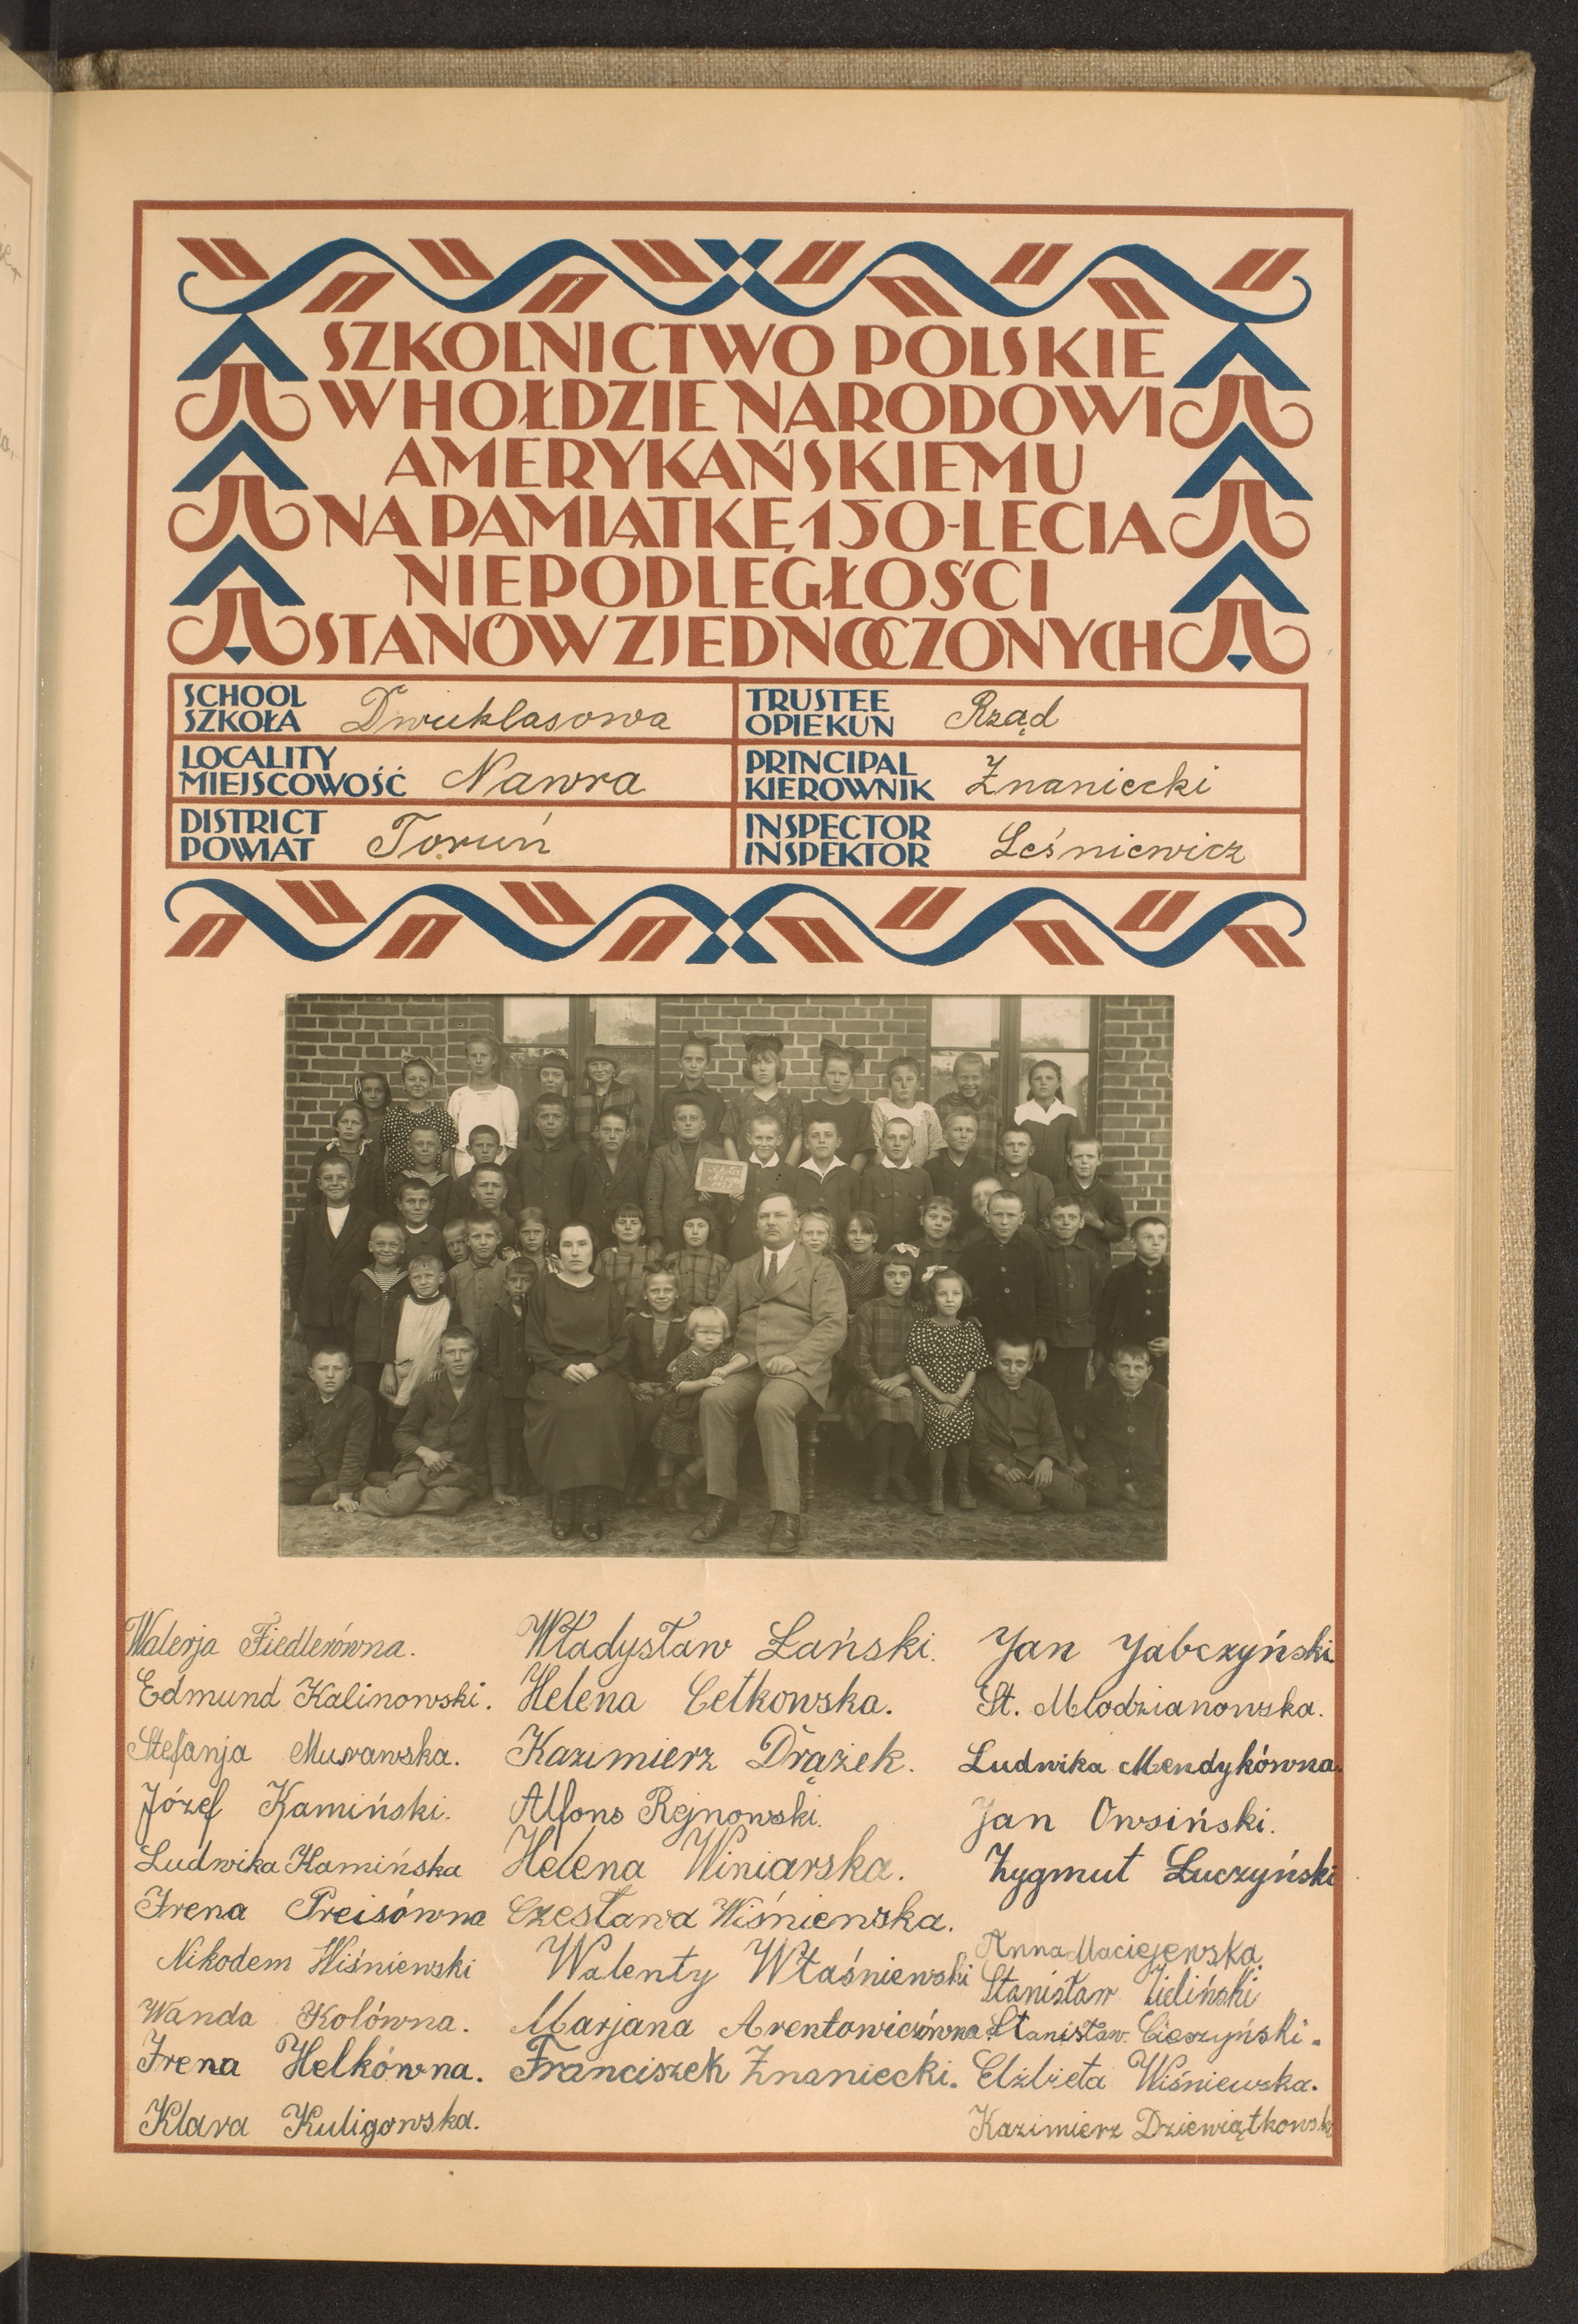 SZKOLNICTWO POLSKIE
W HOŁDZIE NARODOWI
AMERYKAŃSKIEMU
NA PAMIĄTKĘ 150-LECIA
NIEPODLEGŁOŚCI
STANÓW ZJEDNOCZONYCH
SCHOOL
SZKOŁA Dwuklasowa
TRUSTEE
OPIEKUN Rząd
LOCALITY
MIEJSCOWOŚĆ Nawra
PRINCIPAL
KIEROWNIK Znaniecki
DISTRICT
POWIAT Toruń
INSPECTOR
INSPEKTOR Leśniewicz
Walerja Fiedlerówna.
Edmund Kalinowski.
Stefanja Murawska.
Józef Kamiński.
Ludwika Kamińska
Irena Preisówna
Nikodem Wiśniewski
Wanda Kolówna.
Irena Helkówna.
Klara Kuligowska.
Władysław Łański.
Helena Cetkowska.
Kazimierz Drążek.
Alfons Rejnowski.
Helena Winiarska.
Czesława Wiśniewska.
Walenty Właśniewski
Marjana Arentowiczówna.
Franciszek Znaniecki.
Jan Jabczyński
St. Młodzianowska.
Ludwika Mendykówna.
Jan Owsiński.
Zygmut Łuczyński
Anna Maciejewska.
Stanisław Zieliński
Stanisław Cieszyński.
Elżbieta Wiśniewska.
Kazimierz Dziewiątkowski